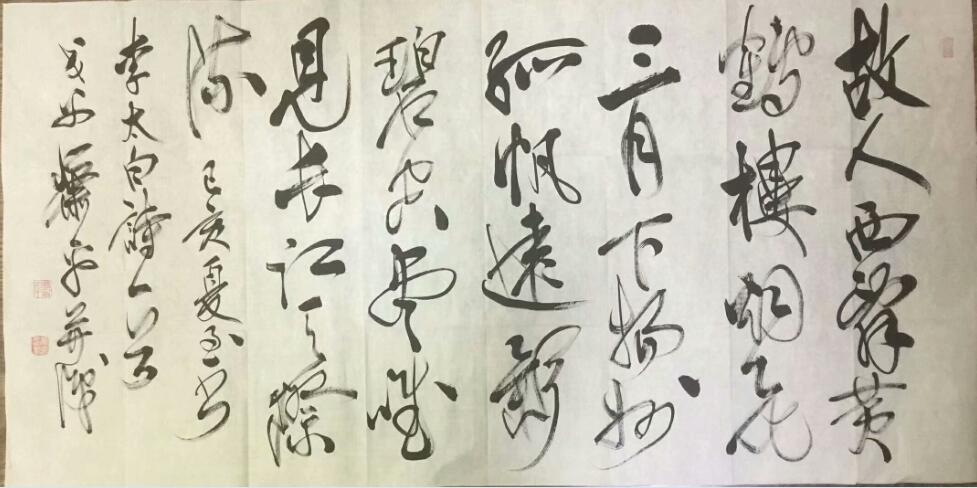 故人西辭黄
鶴樓烟花
三月下揚州
孤帆遠影
碧空盡唯
見長江天際
流 己亥夏至書
李太白詩一首
平并識